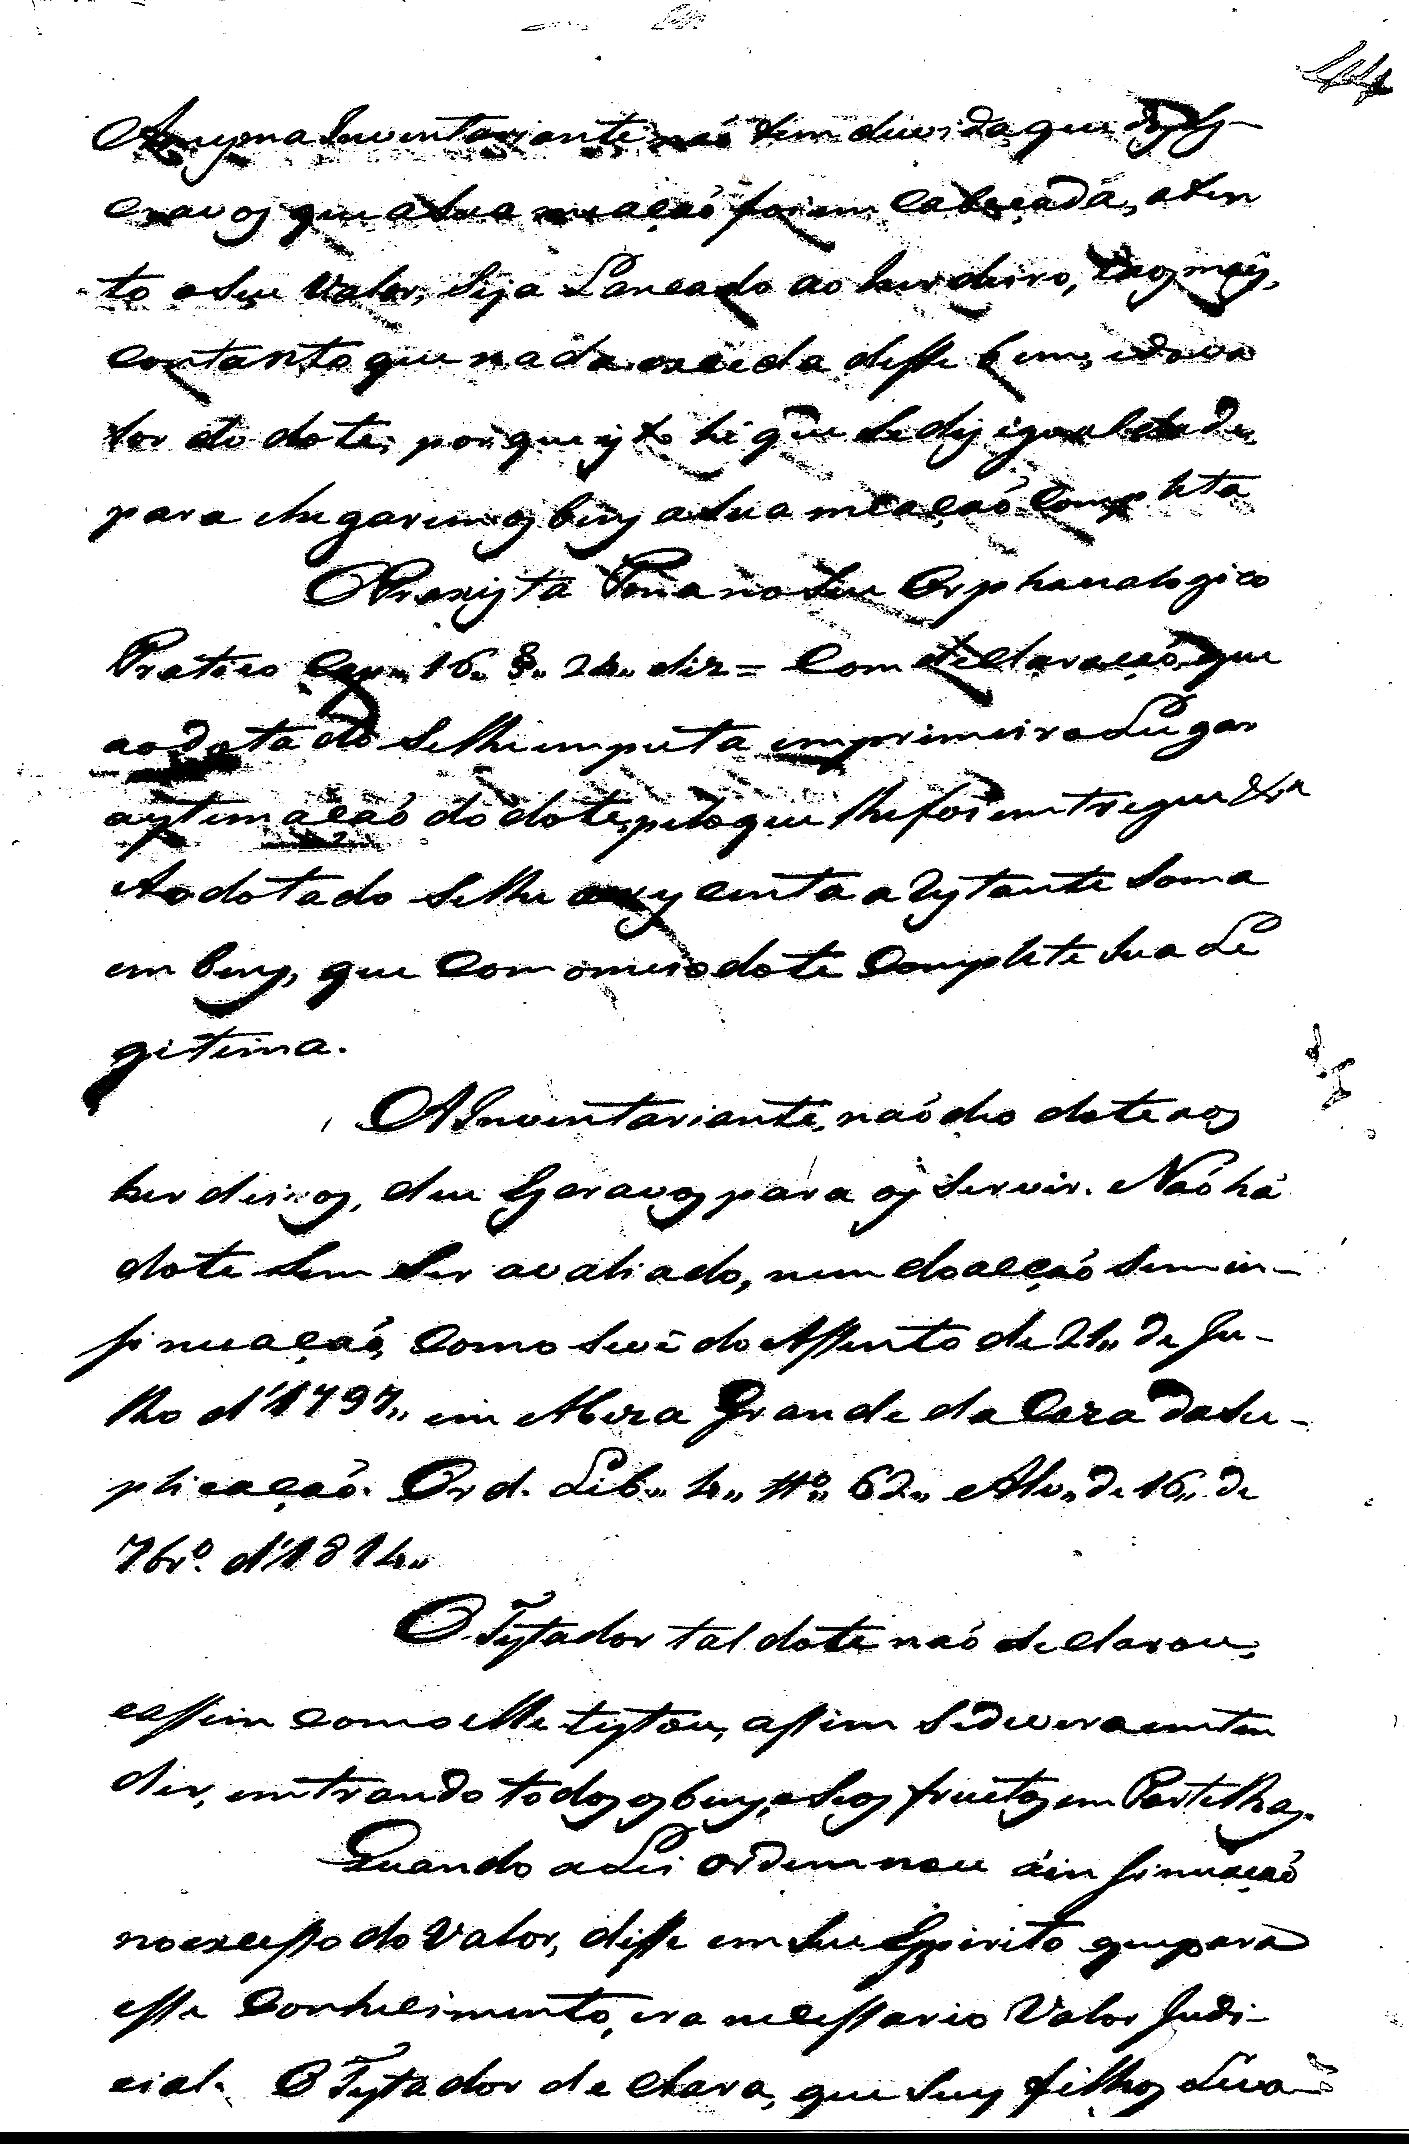 44
A mesma Inventariante não tem duvida que dos Es-
cravos que a Sua meação forem Cabeçada, aten
to o Seu Valor, Seja Lançado ao herdeiro, e aos mais,
contanto que nada exceda desse bem, e do va
lor do dote, porque isto hé que Se dis igualdade,
para chegarem os bens a Sua meação Completa
O Praxista Pona no Seu Orphanalogico
Pratico Cap. 16. §. 24,, diz = Com declaração, que
ao dotado Se lhe imputa em primeiro Lugar
a estimação do dote, pelo que lhe foi entregue &ra
Ao dotado Se lhe accrescenta a restante Soma
em bens, que Com o meio dote Complete Sua Le
gitima.
A Inventariante, não deo dote aos
herdeiros, deu Escravos para os Servir. Não há
dote Sem Ser avaliado, nem doacção Sem in-
sinuação, Como Se vê do Assento de 21,, de Ju-
lho d'1797,, em Meza Grande da Caza da Su-
plicação. Ord. Lib,, 4,, tto,, 62,, e Alv,, de 16,, de
7bro. d'1814,,
O Testador tal dote não declarou,
e assim como elle testou, assim Se devera enten
der, entrando todos os bens, e Seos fructos em Partilhas.
Quando a Lei ordennou á in sinuação
no excesso do Valor, disse em Seu Espirito que para
esse Conhecimento, era necessario Valor Judi-
cial. O Testador declara, que Seus filhos Levão